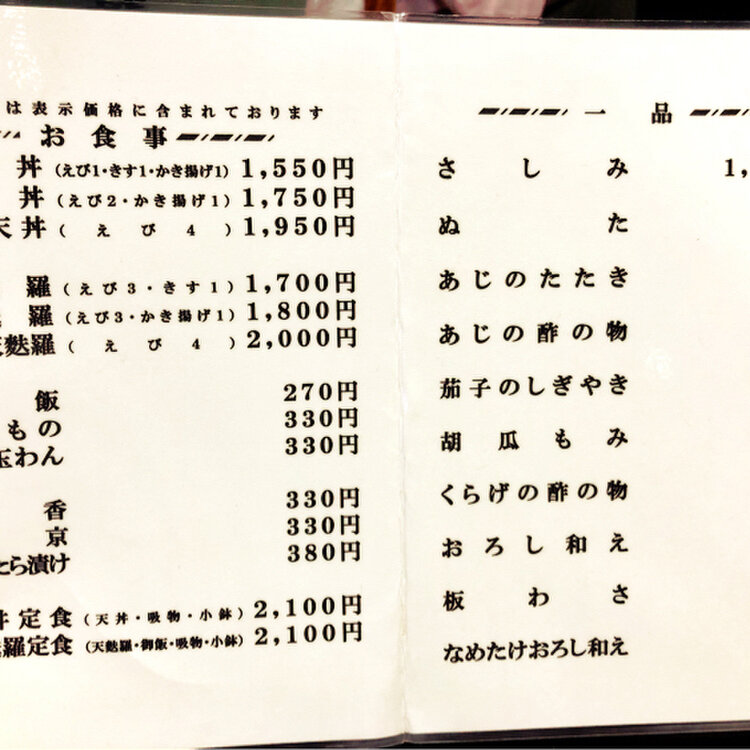 は表示価格に含まれております
お食事
丼(えび1・きす1・かき揚げ1) 1,550円
丼(えび2・かき揚げ1) 1,750円
天丼(えび4) 1,950円
羅(えび3・きす1) 1,700円
羅(えび3・かき揚げ1) 1,800円
麩羅(えび4) 2,000円
飯 270円
もの 330円
玉わん 330円
香 330円
京 330円
たら漬け 380円
丼定食(天丼・吸物・小鉢) 2,100円
羅定食(天麩羅・御飯・吸物・小鉢) 2,100円
一品
さしみ 1,
ぬた
あじのたたき
あじの酢の物
茄子のしぎやき
胡瓜もみ
くらげの酢の物
おろし和え
板わさ
なめたけおろし和え